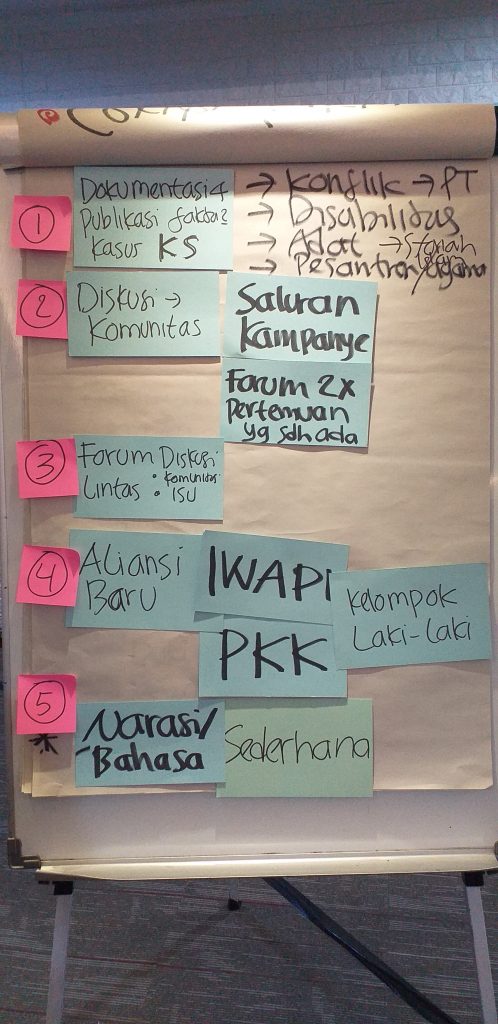 1
Dokumentasi 4
Publikasi fakta2
kasus KS
→ Konflik → PT
→ Disabilitas
→ Adat →
→ Pesantren/Agama
2
Diskusi →
Komunitas
Saluran
Kampanye
Forum 2x
Pertemuan
yg sdh ada
3
Forum Diskusi
Lintas : • Komunitas
• ISU
4
Aliansi
Baru
IWAPI
PKK
Kelompok
Laki-laki
5
*
Narasi/
Bahasa
Sederhana